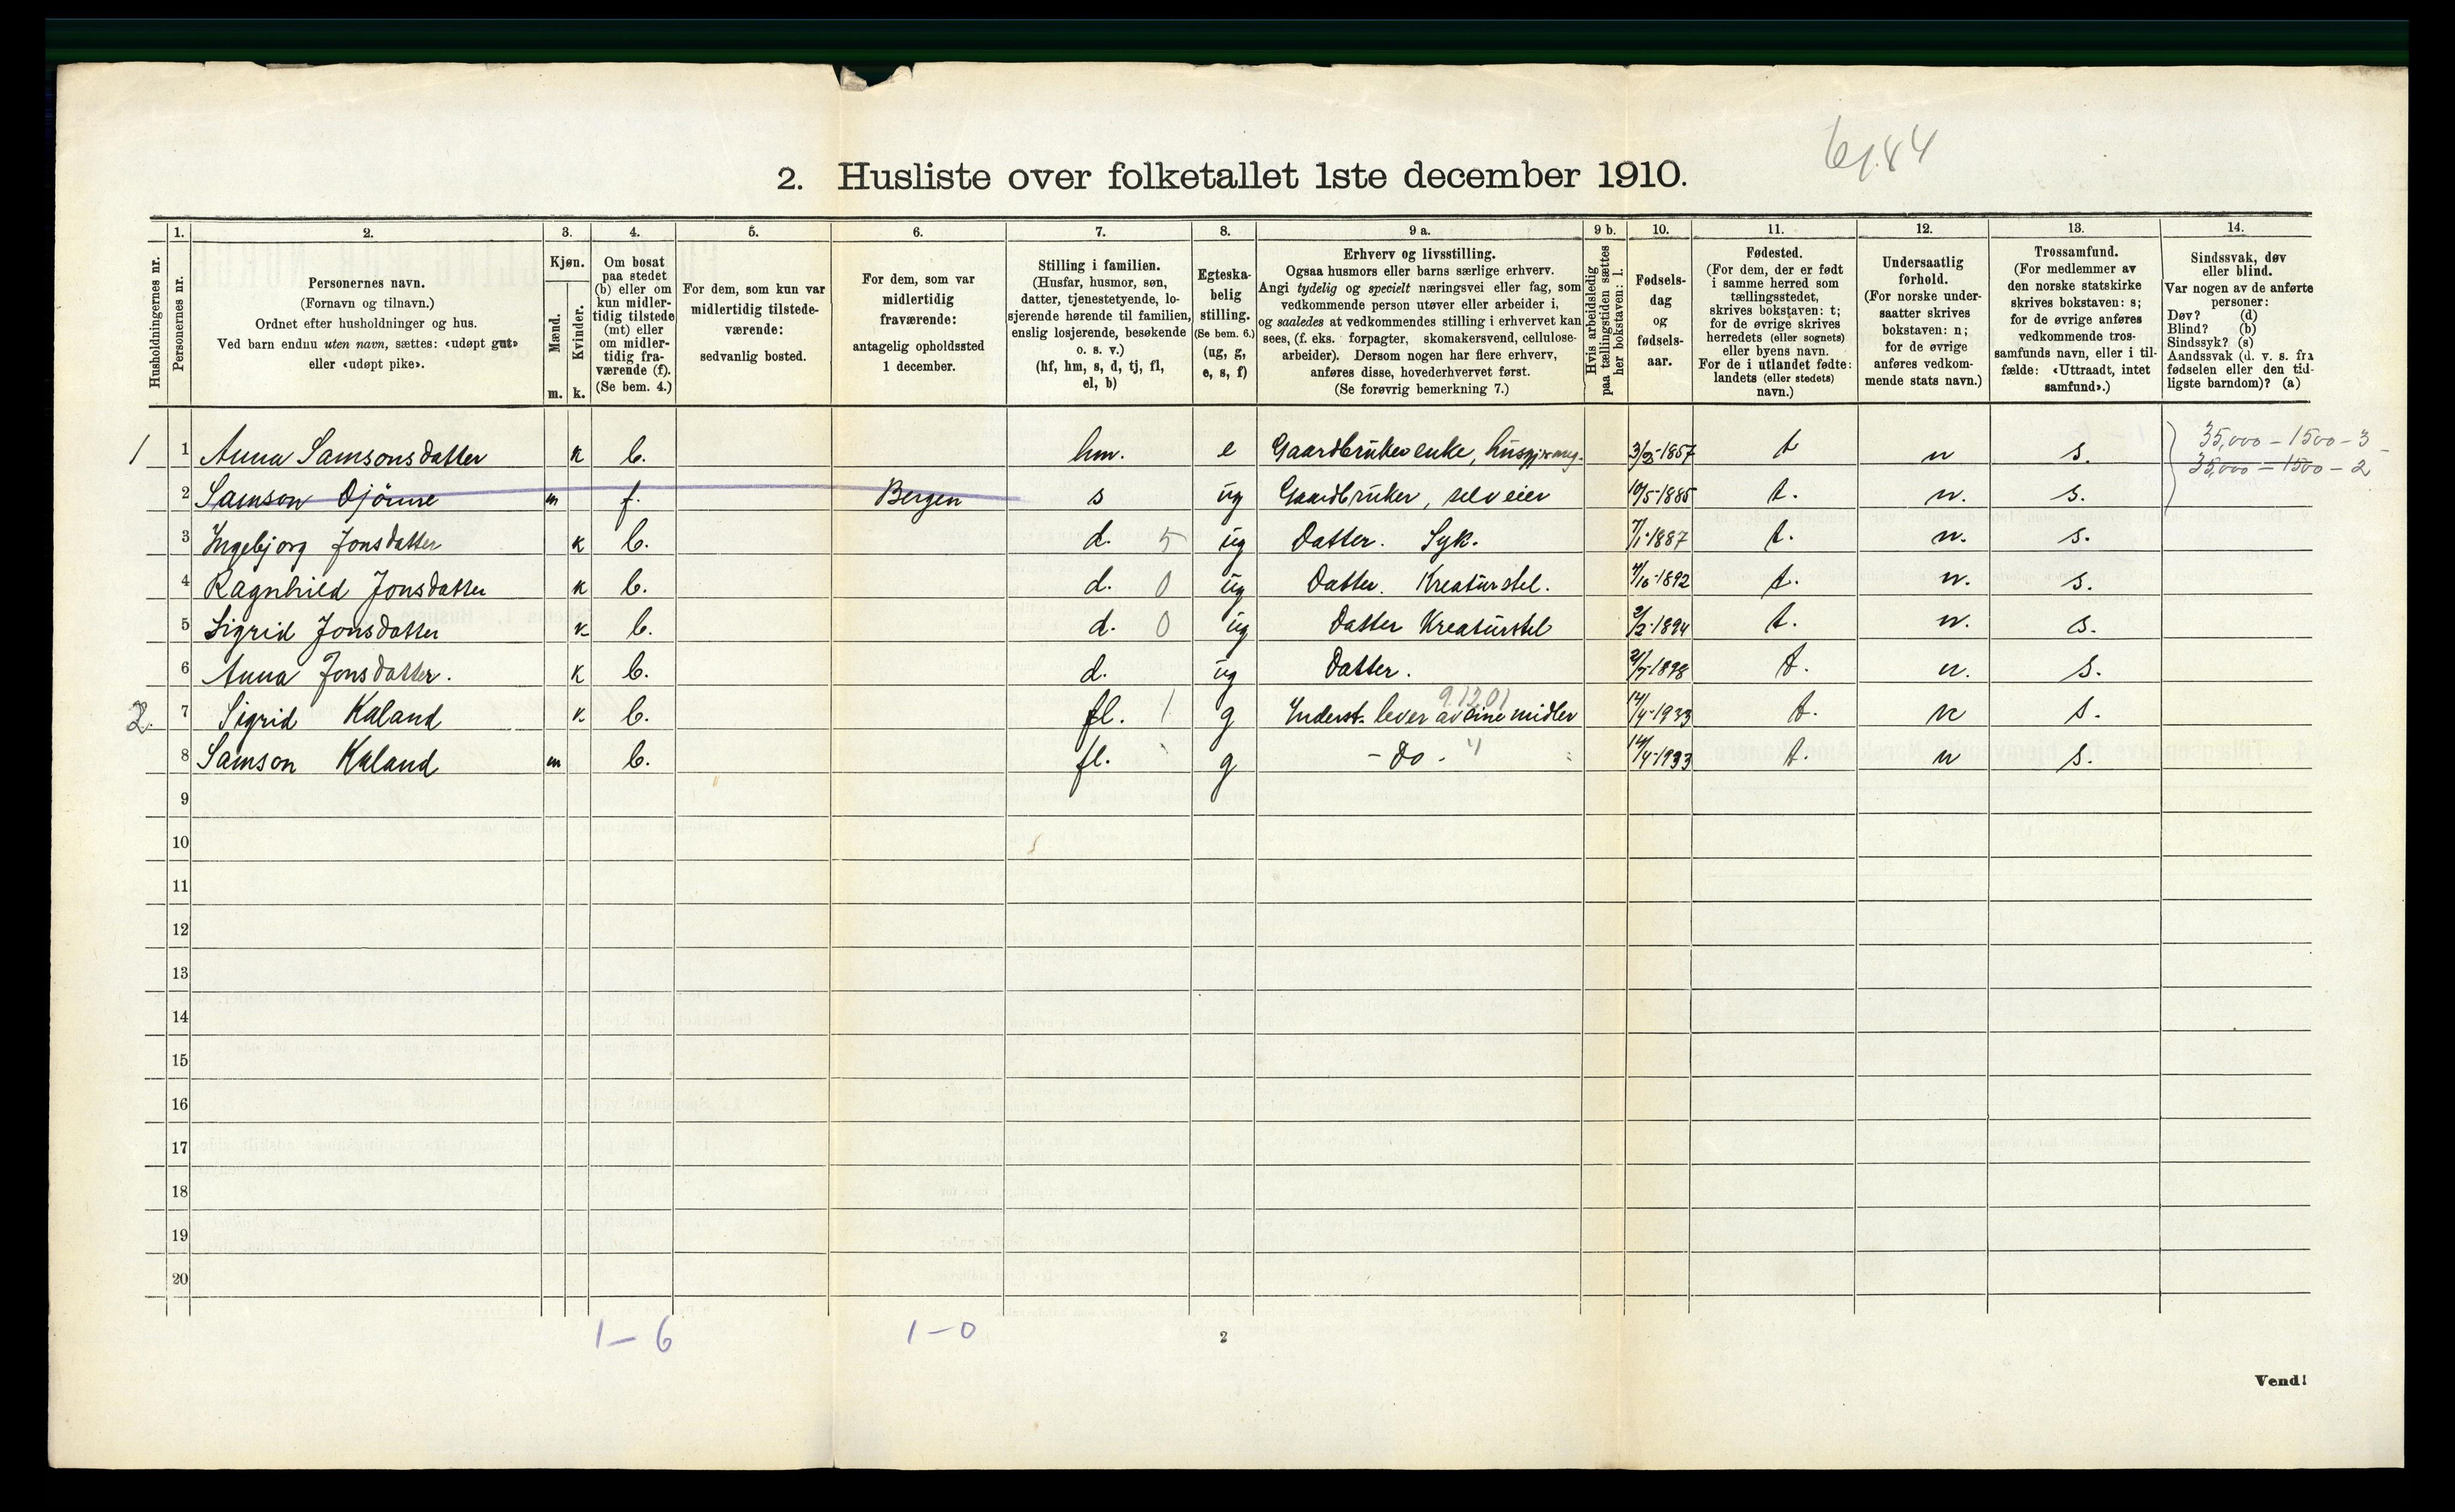 6/84
2. Husliste over folketallet 1ste december 1910.
Husholdningernes nr.
1. Personernes nr.
2. Personernes navn.
(Fornavn og tilnavn.)
Ordnet efter husholdninger og hus.
Ved barn endnu uten navn, sættes: «udøpt gut»
eller «udøpt pike».
3. Kjøn.
Mænd. m.
Kvinder. k.
4. Om bosat
paa stedet
(b) eller om
kun midler-
tidig tilstede
(mt) eller
om midler-
tidig fra-
værende (f).
(Se bem. 4.)
5. For dem, som kun var
midlertidig tilstede-
værende:
sedvanlig bosted.
6. For dem, som var
midlertidig
fraværende:
antagelig opholdssted
1 december.
7. Stilling i familien.
(Husfar, husmor, søn,
datter, tjenestetyende, lo-
sjerende hørende til familien,
enslig losjerende, besøkende
o. s. v.)
(hf, hm, s, d, tj, fl,
el, b)
8. Egteska-
belig
stilling.
(Se bem. 6.)
(ug, g,
e, s, f)
9 a. Erhverv og livsstilling.
Ogsaa husmors eller barns særlige erhverv.
Angi tydelig og specielt næringsvei eller fag, som
vedkommende person utøver eller arbeider i,
og saaledes at vedkommendes stilling i erhvervet kan
sees, (f. eks. forpagter, skomakersvend, cellulose-
arbeider). Dersom nogen har flere erhverv,
anføres disse, hovederhvervet først.
(Se forøvrig bemerkning 7.)
9 b. Hvis arbeidsledig
paa tællingstiden sættes
her bokstaven: l.
10. Fødsels-
dag
og
fødsels-
aar.
11. Fødested.
(For dem, der er født
i samme herred som
tællingsstedet,
skrives bokstaven: t;
for de øvrige skrives
herredets (eller sognets)
eller byens navn.
For de i utlandet fødte:
landets (eller stedets)
navn.)
12. Undersaatlig
forhold.
(For norske under-
saatter skrives
bokstaven: n;
for de øvrige
anføres vedkom-
mende stats navn.)
13. Trossamfund.
(For medlemmer av
den norske statskirke
skrives bokstaven: s;
for de øvrige anføres
vedkommende tros-
samfunds navn, eller i til-
fælde: «Uttraadt, intet
samfund».)
14. Sindssvak, døv
eller blind.
Var nogen av de anførte
personer:
Døv? (d)
Blind? (b)
Sindssyk? (s)
Aandssvak (d. v. s. fra
fødselen eller den tid-
ligste barndom)? (a)
1 1 Anna Samsonsdatter k b. hm. e Gaardbrukerenke, 1857 t n s. 35,000 – 1500 – 3
35,000 – 1500 – 2
2 Samson Djønne m f. Bergen s ug Gaardbruker, selveier 10/5-1885 t. n. s.
3 Ingebjorg Jonsdatter k b. d. 5 ug Datter. Syk. 7/1-1887 t. n. s.
4 Ragnhild Jonsdatter k b. d. 0 ug Datter. Kreaturstel. 1892 t. n. s.
5 Sigrid Jonsdatter k b. d. 0 ug Datter Kreaturstel 2/2-1894 t. n. s.
6 Anna Jonsdatter. k b. d. ug Datter. 1898 t. n. s.
9.12.01
2. 7 Sigrid Kaland k b. fl. 1 g Inderst. lever av sine midler 14/4-1933 t. n s.
8 Samson Kaland m b. fl. g – do - " 14/4-1933 t. n s.
9
10
11
12
13
14
15
16
17
18
19
20
1 – 6 1 – 0
2
Vend!